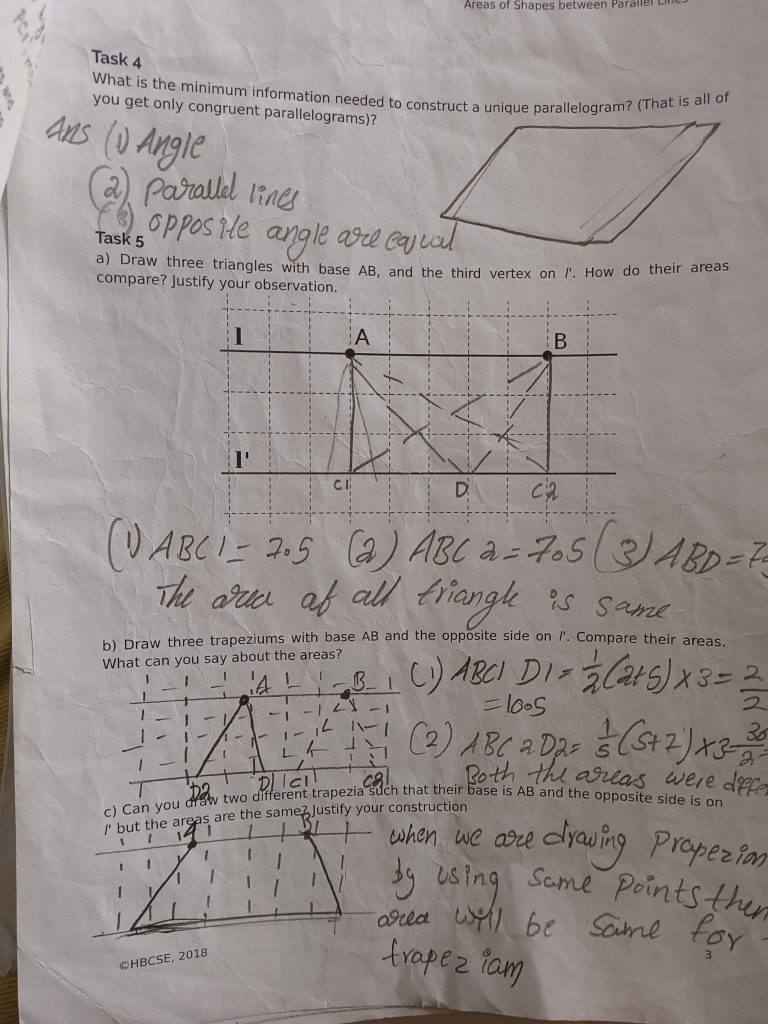 Areas of Shapes between Parallel Lines
Task 4
What is the minimum information needed to construct a unique parallelogram? (That is all of
you get only congruent parallelograms)?
Ans (1) Angle
(2) parallel lines
(3) opposite angle are equal
Task 5
a) Draw three triangles with base AB, and the third vertex on l'. How do their areas
compare? Justify your observation.
l A B
l'
C1 D C2
(1) ABC1 = 7.5 (2) ABC 2 = 7.5 (3) ABD = 7.
The area of all triangle is same
b) Draw three trapeziums with base AB and the opposite side on l'. Compare their areas.
What can you say about the areas?
(1) ABC1 D1 = 1/2 (2+5) × 3 = 2
2
= 10.5
A B
(2) ABC 2 D2 = 1/5 (5+7) × 3 = 36
2 =
D2 D1 C1 C2
Both the areas were
c) Can you draw two different trapezia such that their base is AB and the opposite side is on
l' but the areas are the same? Justify your construction
A B
when we are drawing Prapeziam
by using same points then
area will be same for
trapeziam
©HBCSE, 2018
3